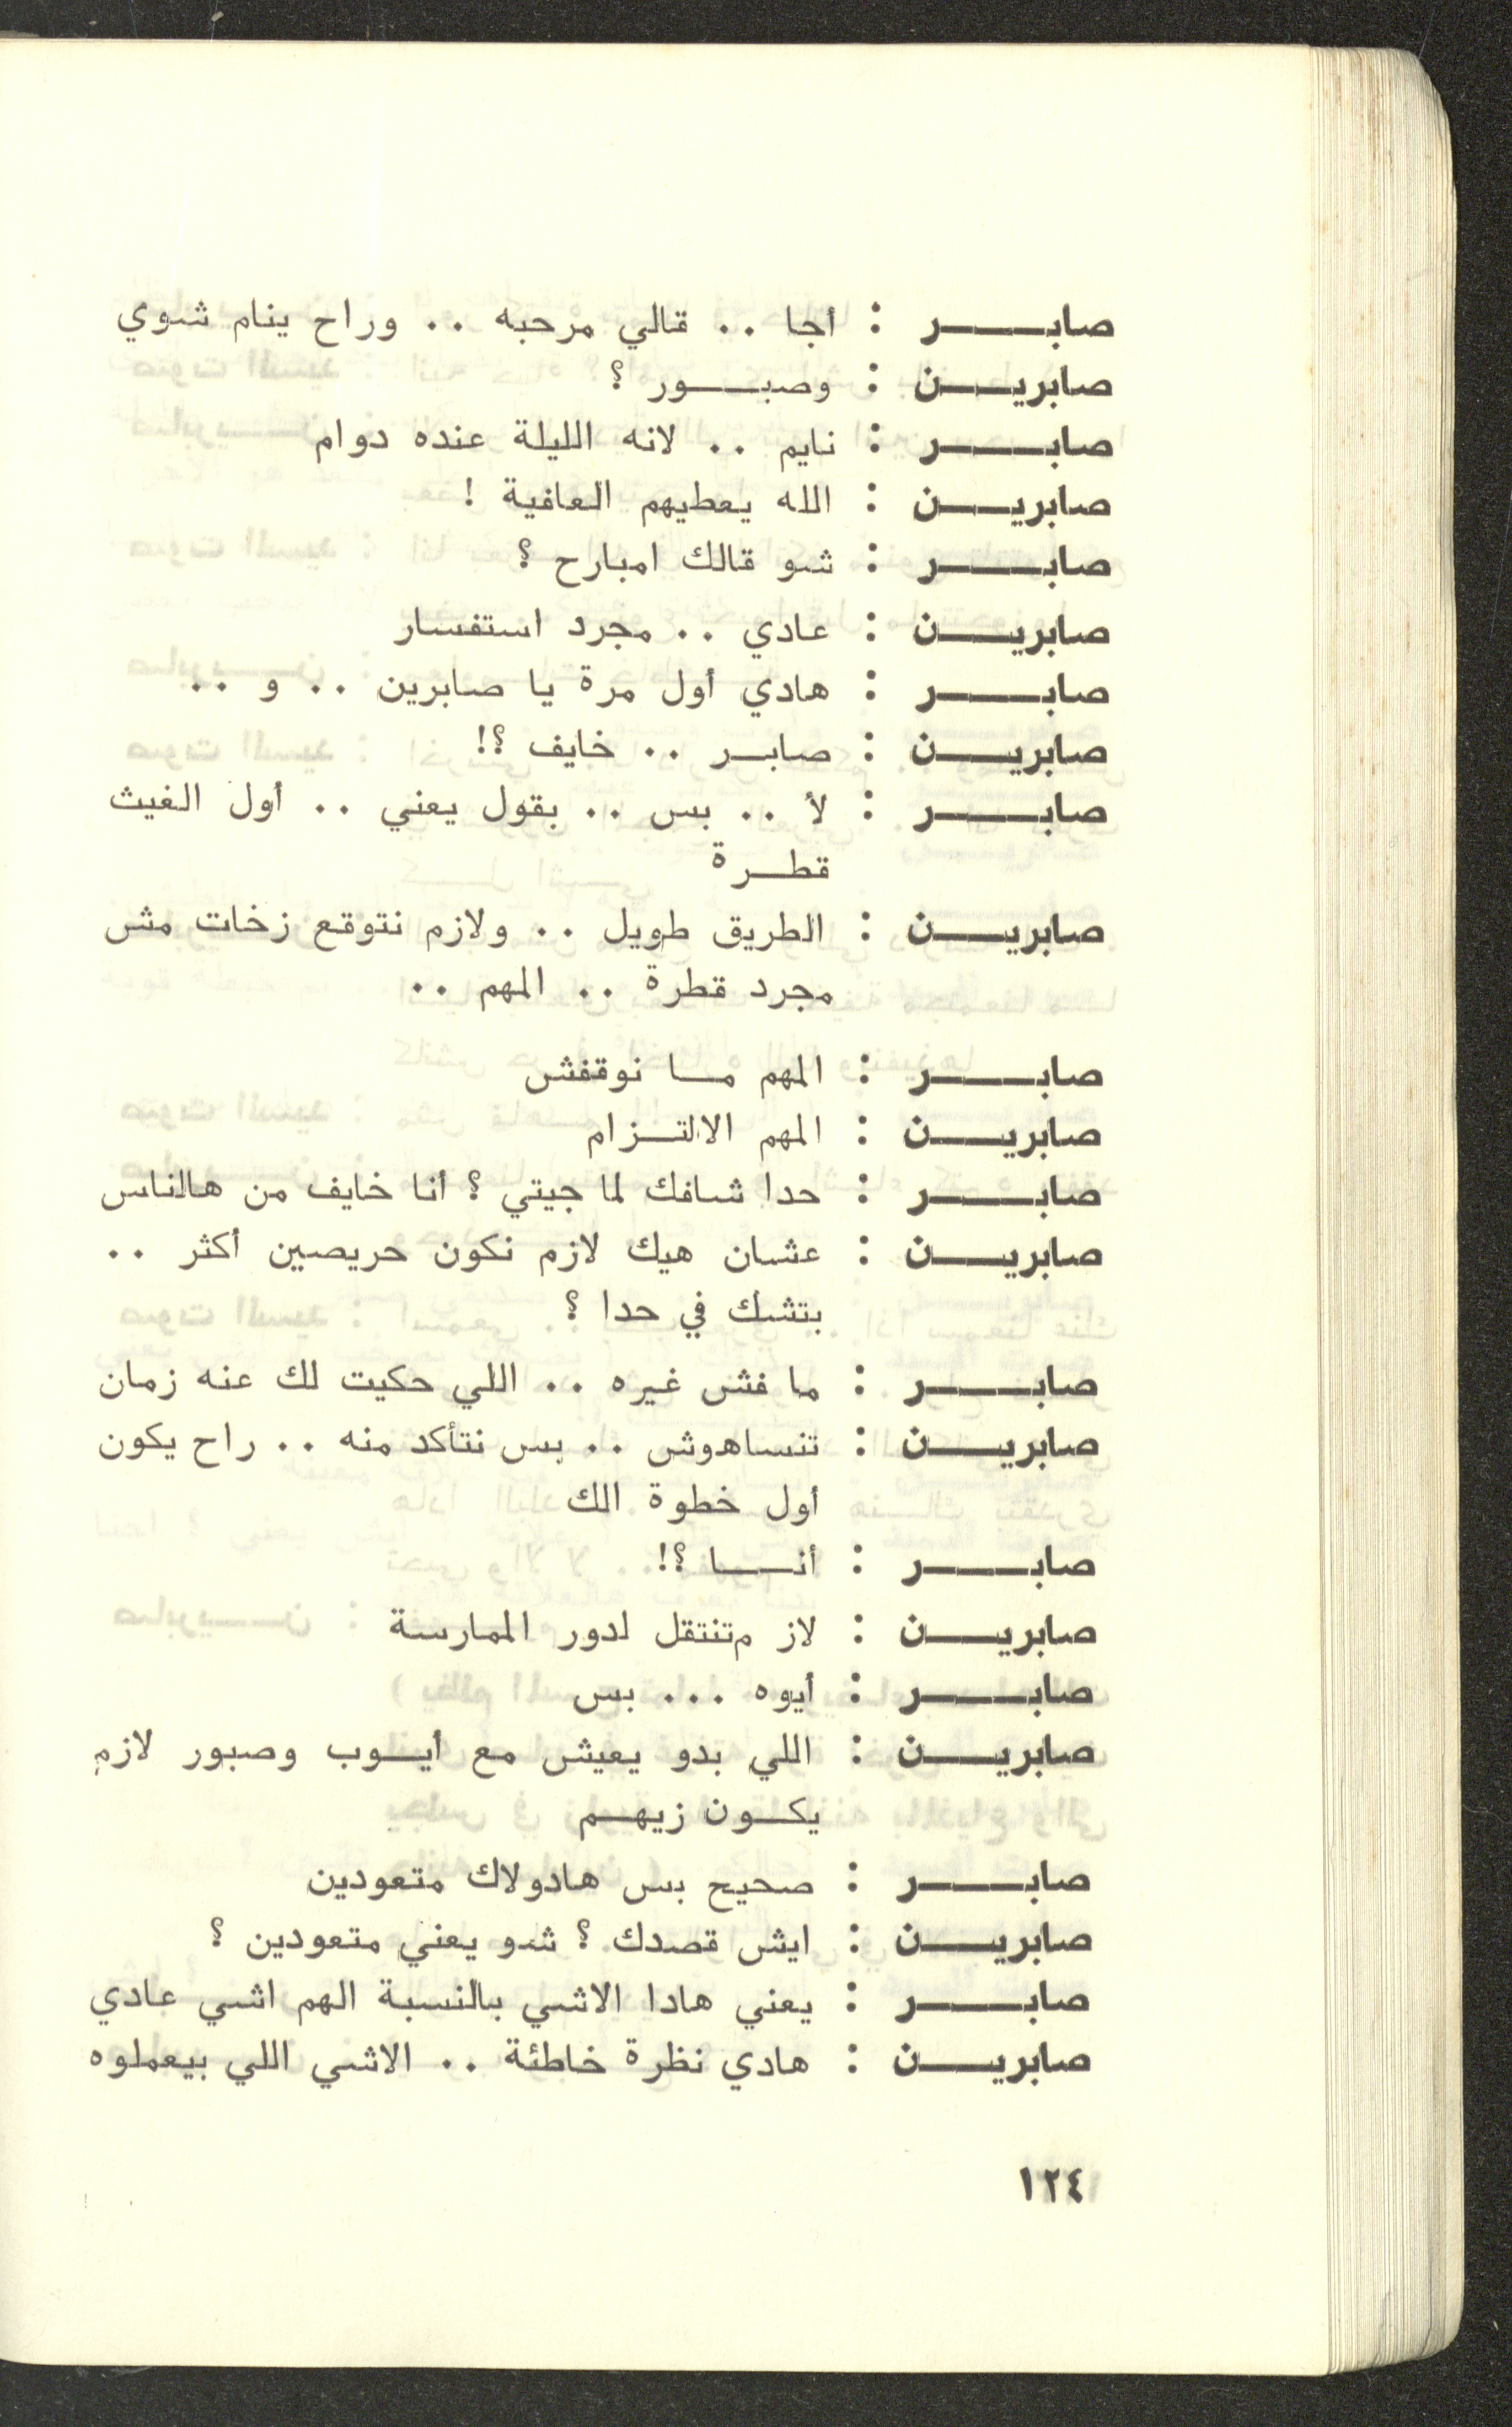 صابر : أجا .. قالي مرحبه .. وراح ينام شوي
صابرين : وصبور ؟
صابر : نايم .. لانه الليلة عنده دوام
صابرين : الله يعطيهم العافية !
صابر : شو قالك امبارح ؟
صابرين : عادي .. مجرد استفسار
صابر : هادي أول مرة يا صابرين .. و ..
صابرين : صابر .. خايف ؟!
صابر : لأ .. بس .. بقول يعني .. أول الغيث
قطرة
صابرين : الطريق طويل .. ولازم نتوقع زخات مش
مجرد قطرة .. المهم ..
صابر : المهم ما نوقفش
صابرين : المهم الالتزام
صابر : حدا شافك لما جيتي ؟ أنا خايف من هالناس
صابرين : عشان هيك لازم نكون حريصين أكثر ..
بتشك في حدا ؟
صابر : ما فش غيره .. اللي حكيت لك عنه زمان
صابرين : تنساهوش .. بس نتأكد منه .. راح يكون
أول خطوة الك
صابر : أنا ؟!
صابرين : لاز متنتقل لدور الممارسة
صابر : أيوه ... بس
صابرين : اللي بدو يعيش مع أيوب وصبور لازم
يكون زيهم
صابر : صحيح بس هادولاك متعودين
صابرين : ايش قصدك ؟ شو يعني متعودين ؟
صابر : يعني هادا الاشي بالنسبة الهم اشي عادي
صابرين : هادي نظرة خاطئة .. الاشي اللي بيعملوه
١٢٤